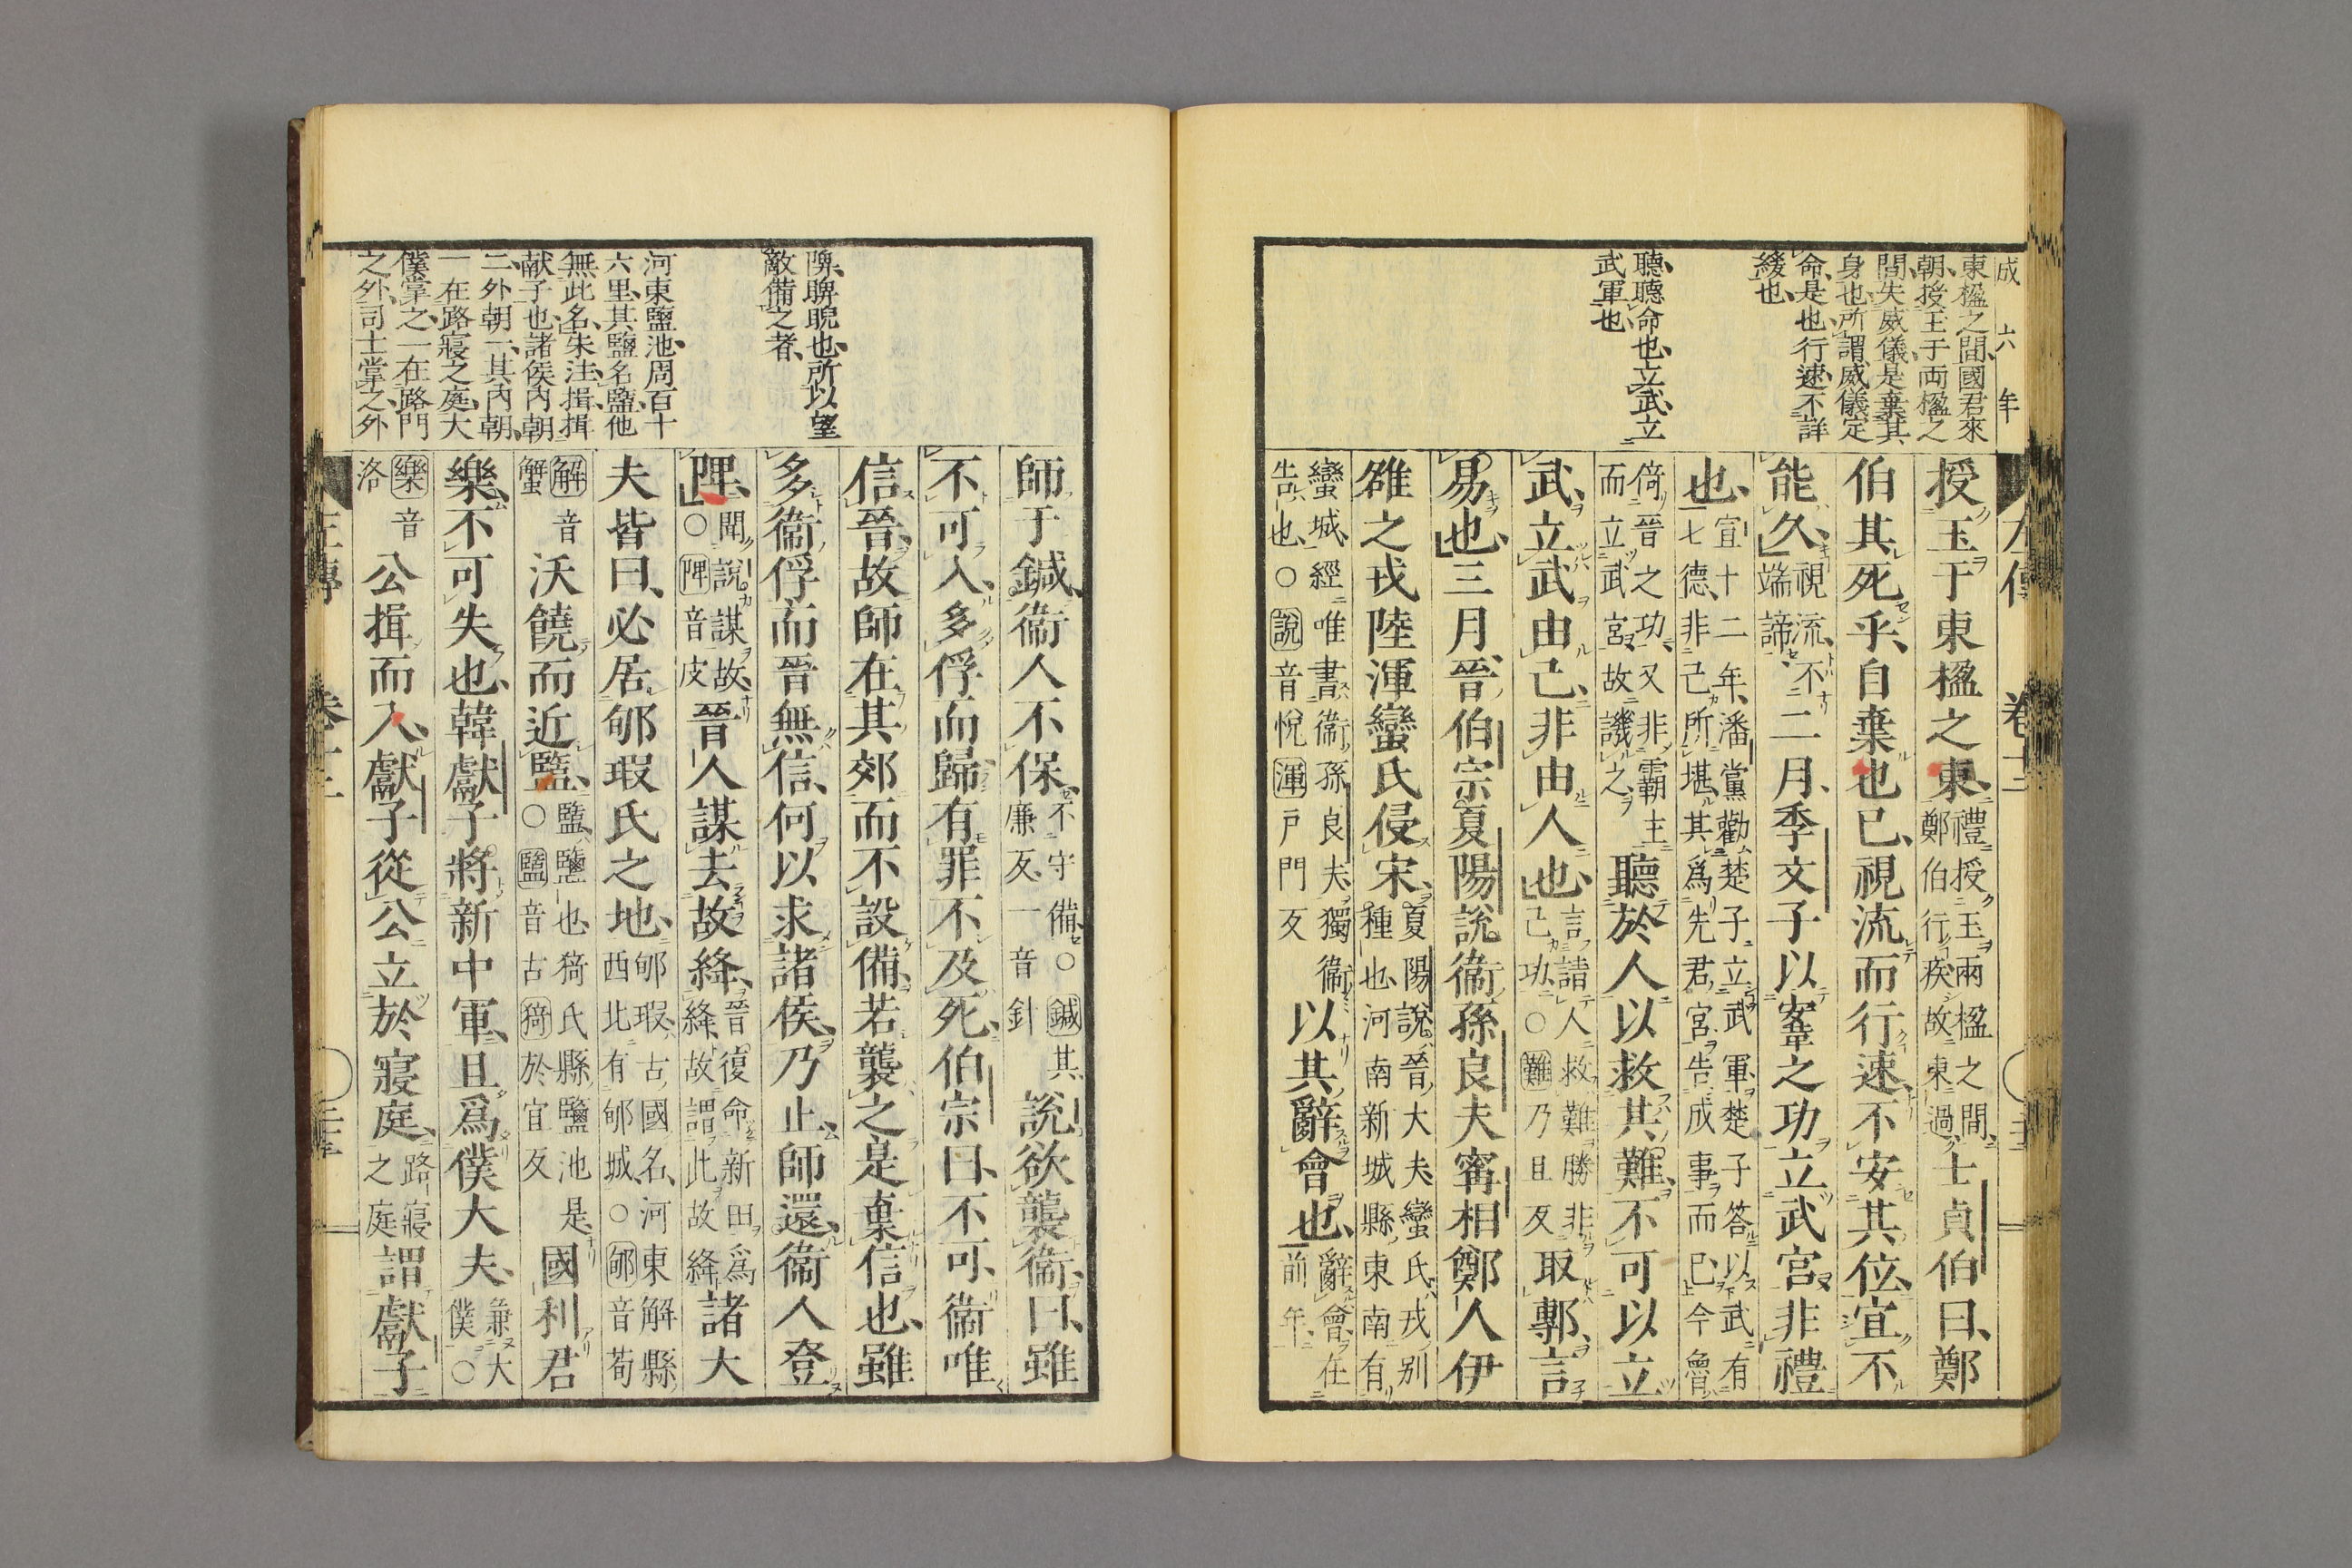 成 六 年
東楹之間國君來
朝授玉于両楹之
間失威儀是棄其
身也所謂威儀定
命是也行速不詳
緩也
聽聽命也立武立
武軍也
左傳 卷十二
授玉于東楹之東禮授玉兩楹之間鄭伯行疾故東過士貞伯曰鄭
伯其死乎自棄也已視流而行速不安其位宜不
能久視流不端諦二月季文子以鞌之功立武宮非禮
也宣十二年潘黨勸楚子立武軍楚子答以武有七德非己所堪其爲先君宮告成事而已今魯
倚晉之功又非霸主而立武宮故譏之聽於人以救其難不可以立
武立武由己非由人也言請人救難勝非己功○難乃旦反取鄟言
易也三月晉伯宗夏陽說衞孫良夫甯相鄭人伊
雒之戎陸渾蠻氏侵宋夏陽說晉大夫蠻氏戎别種也河南新城縣東南有
蠻城經唯書衞孫良夫獨衞告也○說音悅渾戸門反以其辭會也辭會在前年
師于鍼衞人不保不守備○鍼其廉反一音針說欲襲衞曰雖
不可入多俘而歸有罪不及死伯宗曰不可衞唯
信晉故師在其郊而不設備若襲之是棄信也雖
多衞俘而晉無信何以求諸侯乃止師還衞人登
陴聞說謀故○陴音皮晉人謀去故絳晉復命新田爲絳故謂此故絳諸大
夫皆曰必居郇瑕氏之地郇瑕古國名河東解縣西北有郇城○郇音荀
解音蟹沃饒而近盬盬鹽也猗氏縣鹽池是○盬音古猗於宜反國利君
樂不可失也韓獻子將新中軍且爲僕大夫兼大僕○
樂音洛公揖而入獻子從公立於寢庭路寢之庭謂獻子
陴睥睨也所以望
敵備之者
河東鹽池周百十
六里其鹽名盬他
無此名朱注揖揖
献子也諸侯内朝
二外朝一其內朝
一在路寢之庭大
僕掌之一在路門
之外司士掌之外
左傳 卷十二